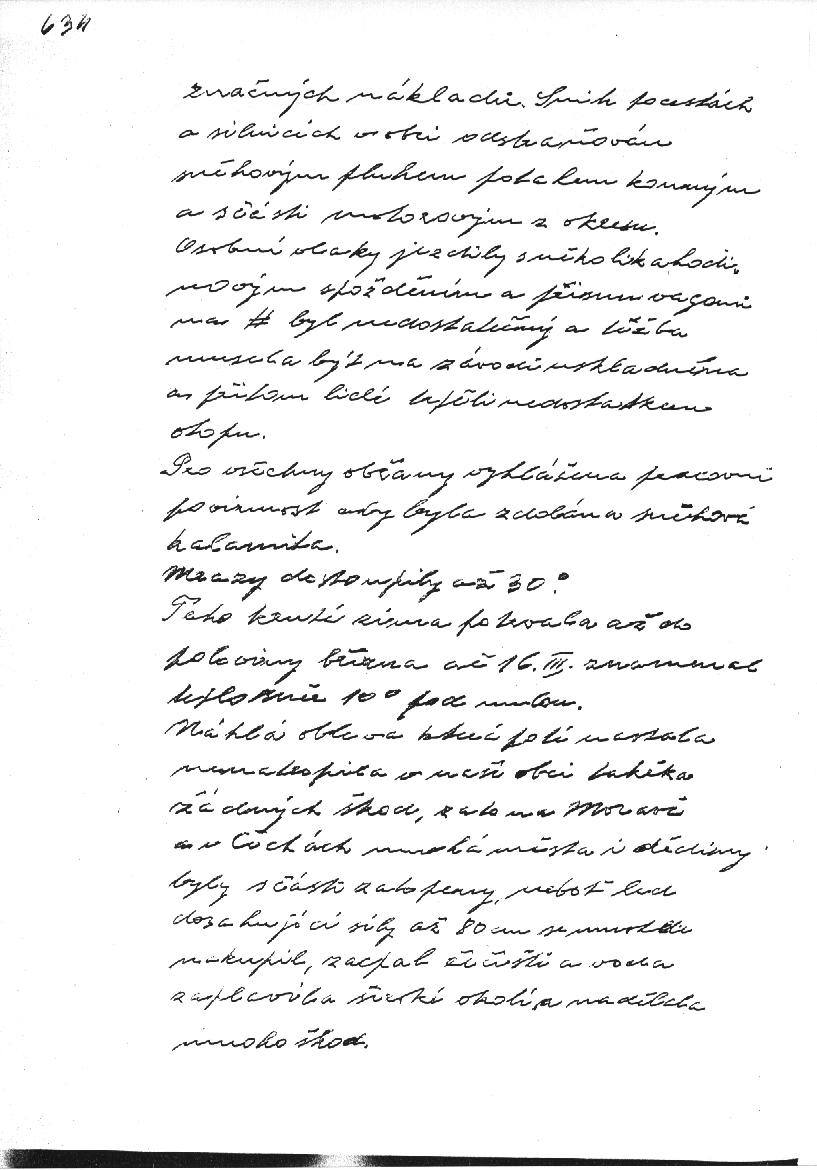 634
značných nákladů. Sníh po cestách
a silnicích v obci odstraňován
sněhovým pluhem potahem konným
a sčásti motorovým z okresu.
Osobní vlaky jezdily s několikahodi-
novým spožděním a přísun vagonů
na # byl nedostatečný a těžba
musela být na závodě uskladněna
a přitom lidé trpěli nedostatkem
otopu.
Pro všechny občany vyhlášena pracovní
povinnost aby byla zdolána sněhová
kalamita.
Mrazy dostoupily až 30°
Tato krutá zima potrvala až do
poloviny března ač 16. III. znamenal
teploměr 10° pod nulou.
Náhlá obleva která poté nastala
nenatropila v naší obci takřka
žádných škod, zato na Moravě
a v Čechách mnohá města i dědiny
byly sčásti zatopeny, neboť led
dosahující síly až 80 cm se mnohde
nakupil, zacpal řečiště a voda
zaplavila široké okolí a nadělala
mnoho škod.